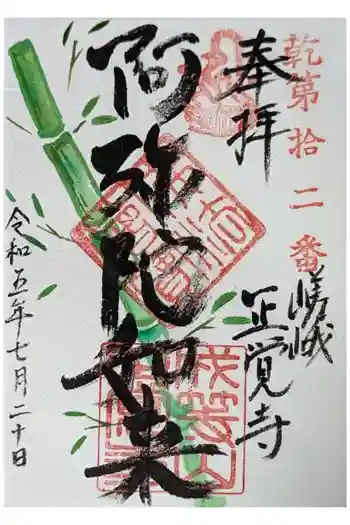 乾第拾二番
奉拝
嶬峨
正覚寺
阿弥陀如来
令和五年七月二十日